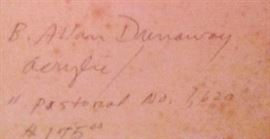 B. Allan Dunaway
acrylic
"Pastoral No.
$175.00